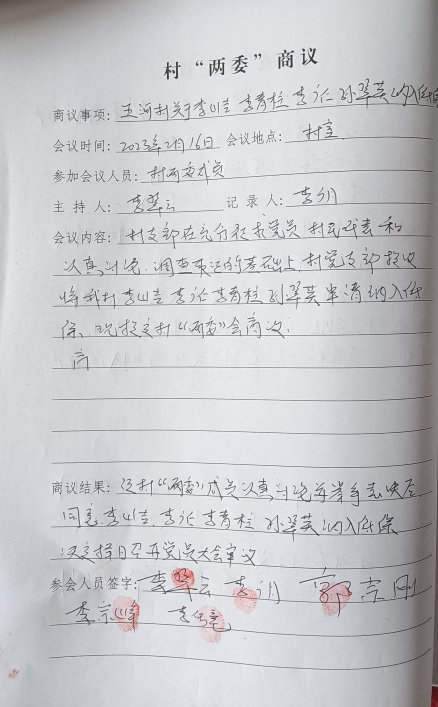 村“两委”商议
商议事项：玉河村关于李川吉 李青柱 李仁 孙翠英纳入低保
会议时间：2023年2月16日 会议地点：村室
参加会议人员：村两委成员
主 持 人：李翠云 记 录 人：李
会议内容：村支部在充分征求党员 村民代表和
认真讨论、调查 的基础上，村党支部提议
将我村李川吉 李仁 李青柱 孙翠英申请纳入低
保，现提交村“两委”会商议。
商议结果：经村“两委”成员认真讨论 举手表决后
同意李川吉、李仁 李青柱 孙翠英纳入低保
决定择日召开党员大会审议
参会人员签字：李翠云 李 郭宗刚
李京峰 李